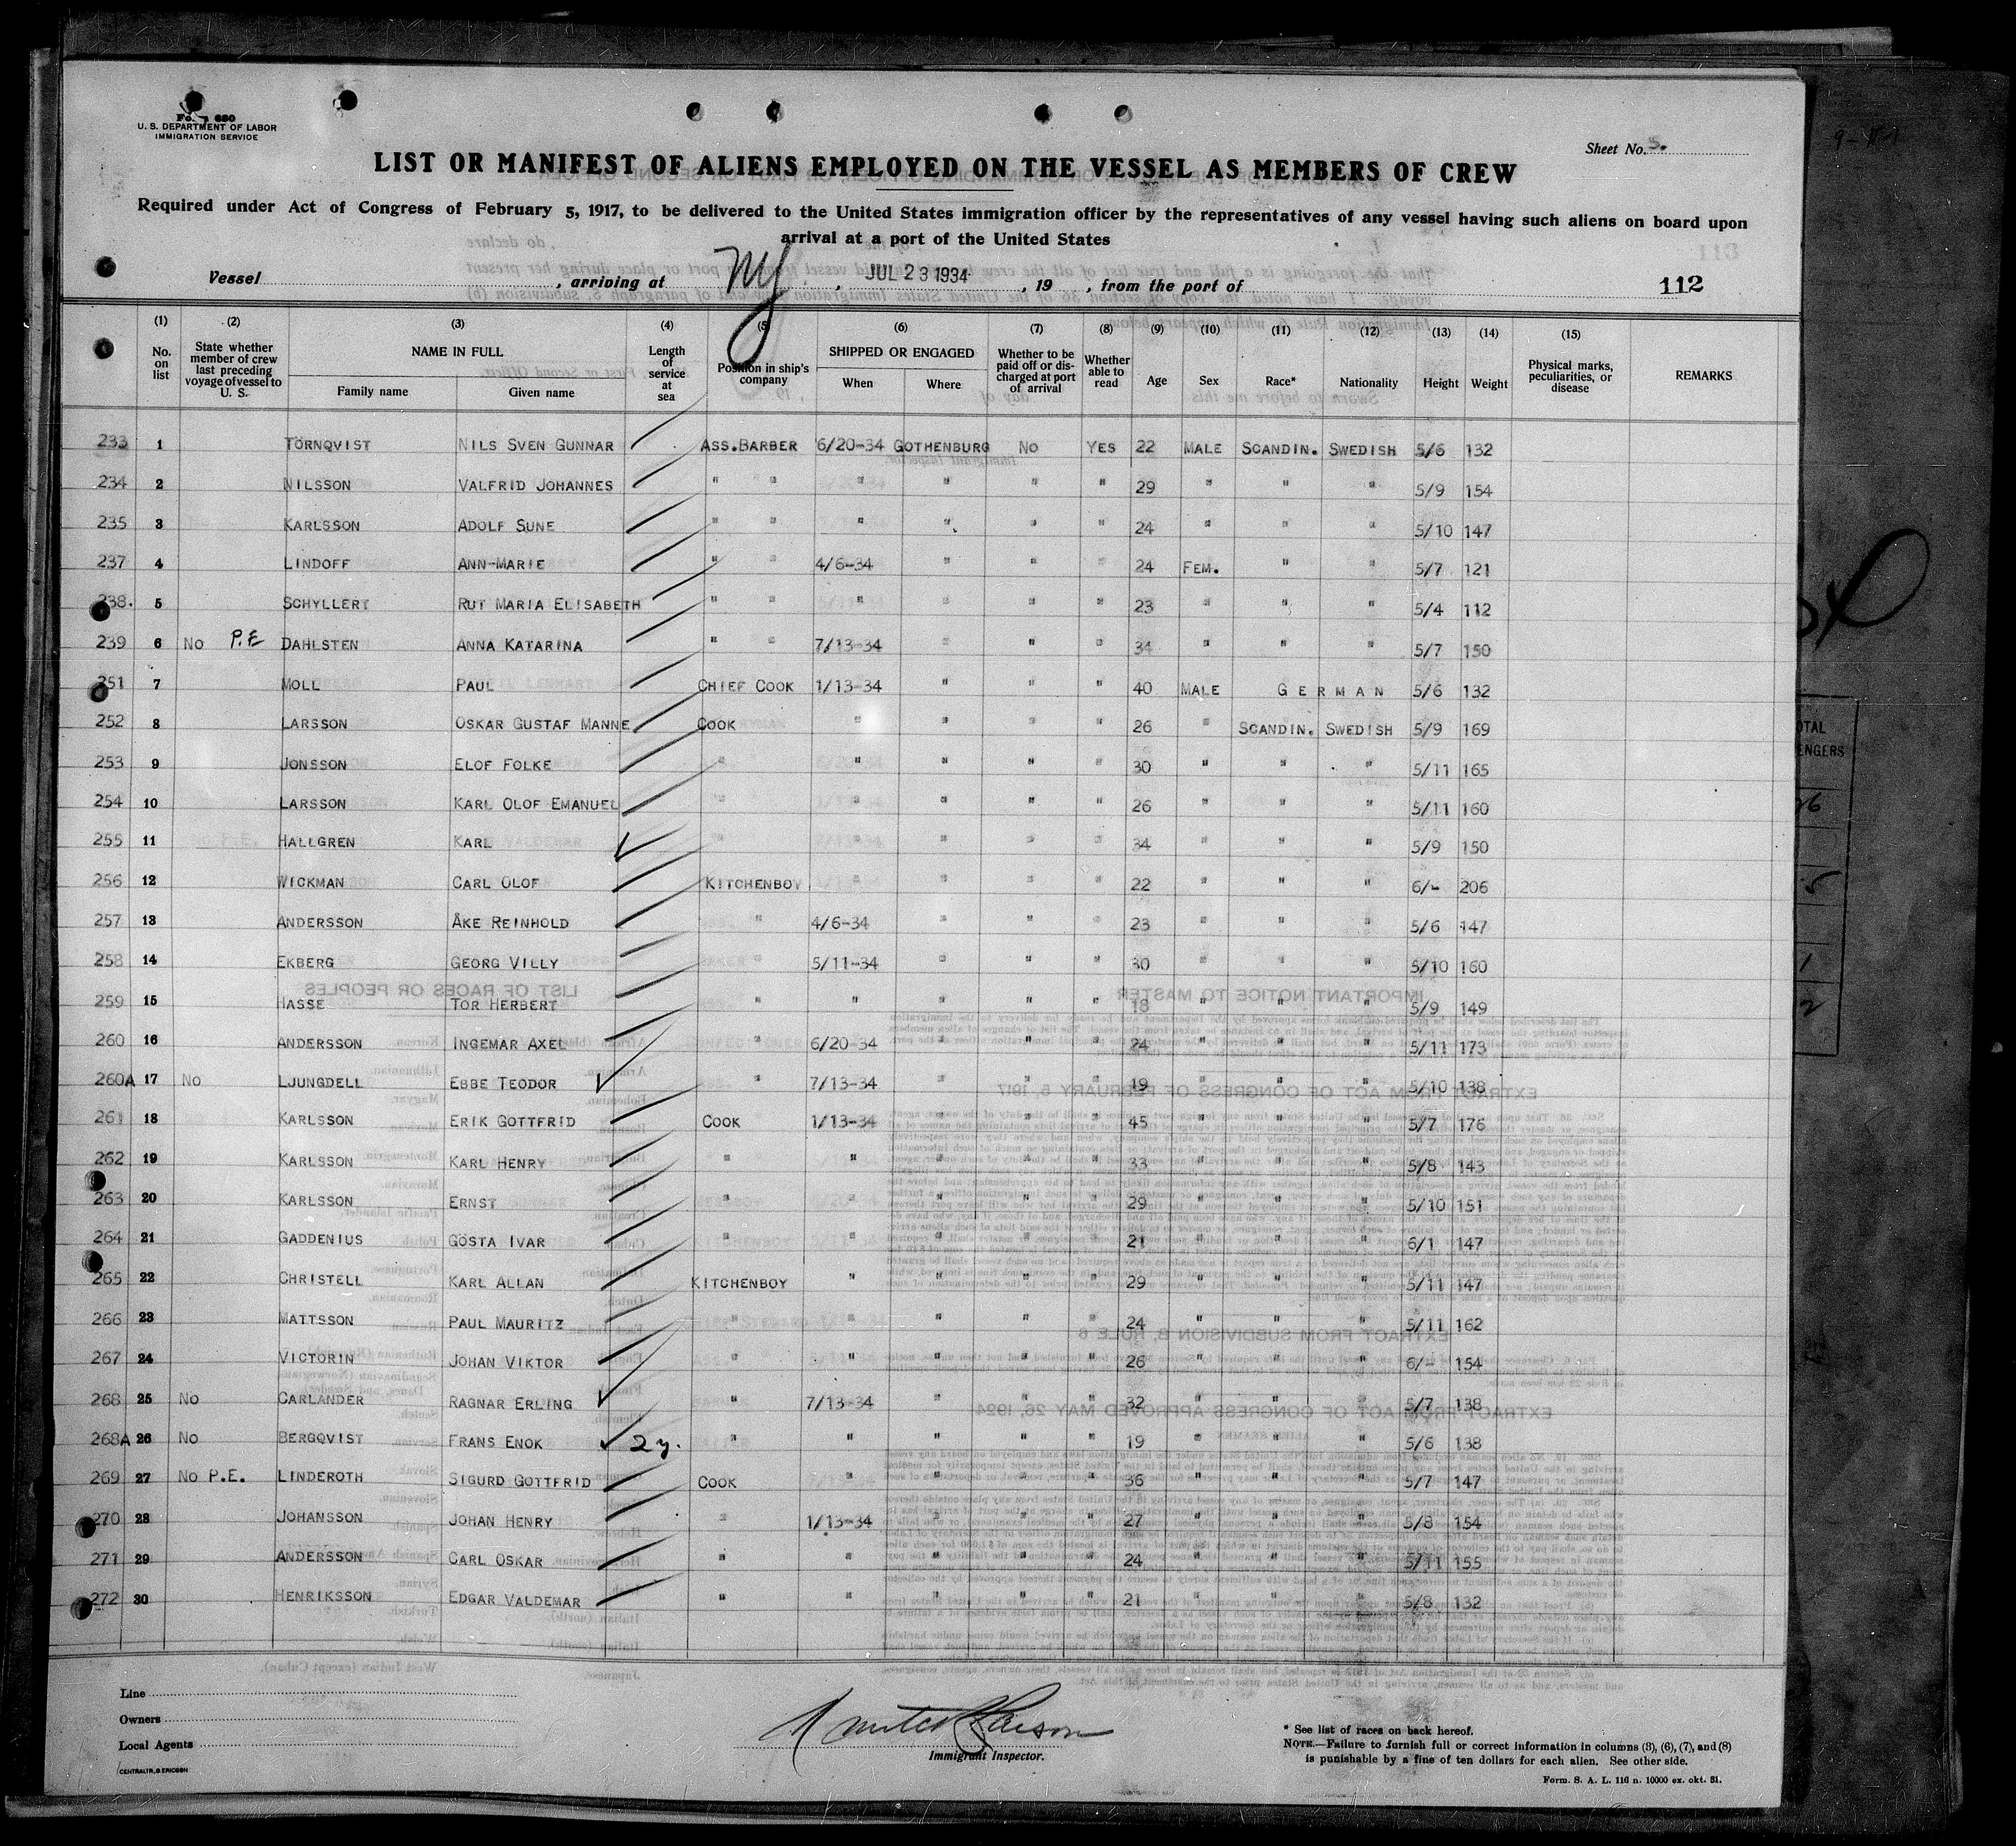 U. S. DEPARTMENT OF LABOR
IMMIGRATION SERVICE
Sheet No. 5.
LIST OR MANIFEST OF ALIENS EMPLOYED ON THE VESSEL AS MEMBERS OF CREW
Required under Act of Congress of February 5, 1917, to be delivered to the United States immigration officer by the representatives of any vessel having such aliens on board upon
arrival at a port of the United States
Vessel , arriving at NY , JUL 23 1934 , 19 , from the port of 112
(1) (2) (3) (4) (5) (6) (7) (8) (9) (10) (11) (12) (13) (14) (15)
No. on list State whether member of crew last preceding voyage of vessel to U. S. NAME IN FULL Family name Given name Length of service at sea Position in ship's company SHIPPED OR ENGAGED When Where Whether to be paid off or discharged at port of arrival Whether able to read Age Sex Race* Nationality Height Weight Physical marks, peculiarities, or disease REMARKS
233 1 TÖRNQVIST NILS SVEN GUNNAR ASS.BARBER 6/20-34 GOTHENBURG NO YES 22 MALE SCANDIN. SWEDISH 5/6 132
234 2 NILSSON VALFRID JOHANNES " " " " " " 29 " " " 5/9 154
235 3 KARLSSON ADOLF SUNE " " " " " " 24 " " " 5/10 147
237 4 LINDOFF ANN-MARIE " " 4/6-34 " " " 24 FEM. " " 5/7 121
238. 5 SCHYLLERT RUT MARIA ELISABETH " " " " " " 23 " " " 5/4 112
239 6 NO P.E DAHLSTEN ANNA KATARINA " " 7/13-34 " " " 34 " " " 5/7 150
251 7 MOLL PAUL CHIEF COOK 1/13-34 " " " 40 MALE GERMAN 5/6 132
252 8 LARSSON OSKAR GUSTAF MANNE COOK " " " " 26 " SCANDIN. SWEDISH 5/9 169
253 9 JONSSON ELOF FOLKE " " " " " 30 " " " 5/11 165
254 10 LARSSON KARL OLOF EMANUEL " " " " " 26 " " " 5/11 160
255 11 HALLGREN KARL " " " " " 34 " " " 5/9 150
256 12 WICKMAN CARL OLOF KITCHENBOY " " " " 22 " " " 6/- 206
257 13 ANDERSSON ÅKE REINHOLD " 4/6-34 " " " 23 " " " 5/6 147
258 14 EKBERG GEORG VILLY " 5/11-34 " " " 30 " " " 5/10 160
259 15 HASSE TOR HERBERT " " " " " 18 " " " 5/9 149
260 16 ANDERSSON INGEMAR AXEL " 6/20-34 " " " 24 " " " 5/11 173
260A 17 NO LJUNGDELL EBBE TEODOR " 7/13-34 " " " 19 " " " 5/10 138
261 18 KARLSSON ERIK GOTTFRID COOK 1/13-34 " " " 45 " " " 5/7 176
262 19 KARLSSON KARL HENRY " " " " " 33 " " " 5/8 143
263 20 KARLSSON ERNST " " " " " 29 " " " 5/10 151
264 21 GADDENIUS GÖSTA IVAR " " " " " 21 " " " 6/1 147
265 22 CHRISTELL KARL ALLAN KITCHENBOY " " " " 29 " " " 5/11 147
266 23 MATTSSON PAUL MAURITZ " " " " " 24 " " " 5/11 162
267 24 VICTORIN JOHAN VIKTOR " " " " " 26 " " " 6/- 154
268 25 NO CARLANDER RAGNAR ERLING " 7/13-34 " " " 32 " " " 5/7 138
268A 26 NO BERGQVIST FRANS ENOK 2 y. " " " " " 19 " " " 5/6 138
269 27 NO P.E. LINDEROTH SIGURD GOTTFRID COOK " " " " 36 " " " 5/7 147
270 28 JOHANSSON JOHAN HENRY " 1/13-34 " " " 27 " " " 5/8 154
271 29 ANDERSSON CARL OSKAR " " " " " 24 " " " 5/11 155
272 30 HENRIKSSON EDGAR VALDEMAR " " " " " 21 " " " 5/8 132
Line
Owners
Local Agents
CENTRALTR, G. ERICSON
Immigrant Inspector.
* See list of races on back hereof.
NOTE.—Failure to furnish full or correct information in columns (3), (6), (7), and (8)
is punishable by a fine of ten dollars for each alien. See other side.
Form. S. A. L. 116 n. 10000 ex. okt. 31.